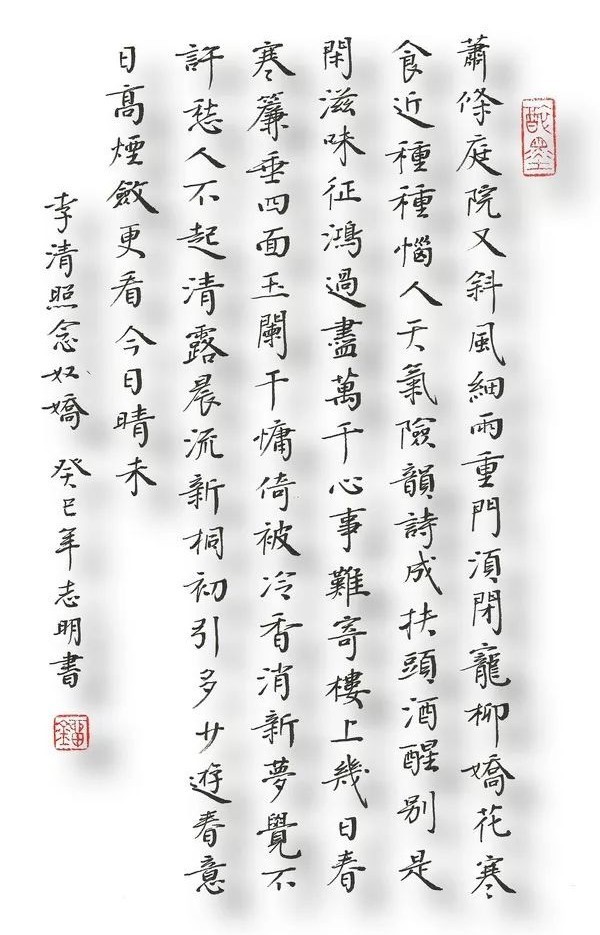 蕭條庭院又斜風細雨重門湏閉寵柳嬌花寒
食近種種惱人天氣險韻詩成扶頭酒醒別是
閑滋味征鴻過盡萬千心事難寄樓上幾日春
寒簾垂四面玉闌干慵倚被冷香消新夢覺不
許愁人不起清露晨流新桐初引多少遊春意
日高煙斂更看今日晴未
李清照念奴嬌 癸巳年志明書